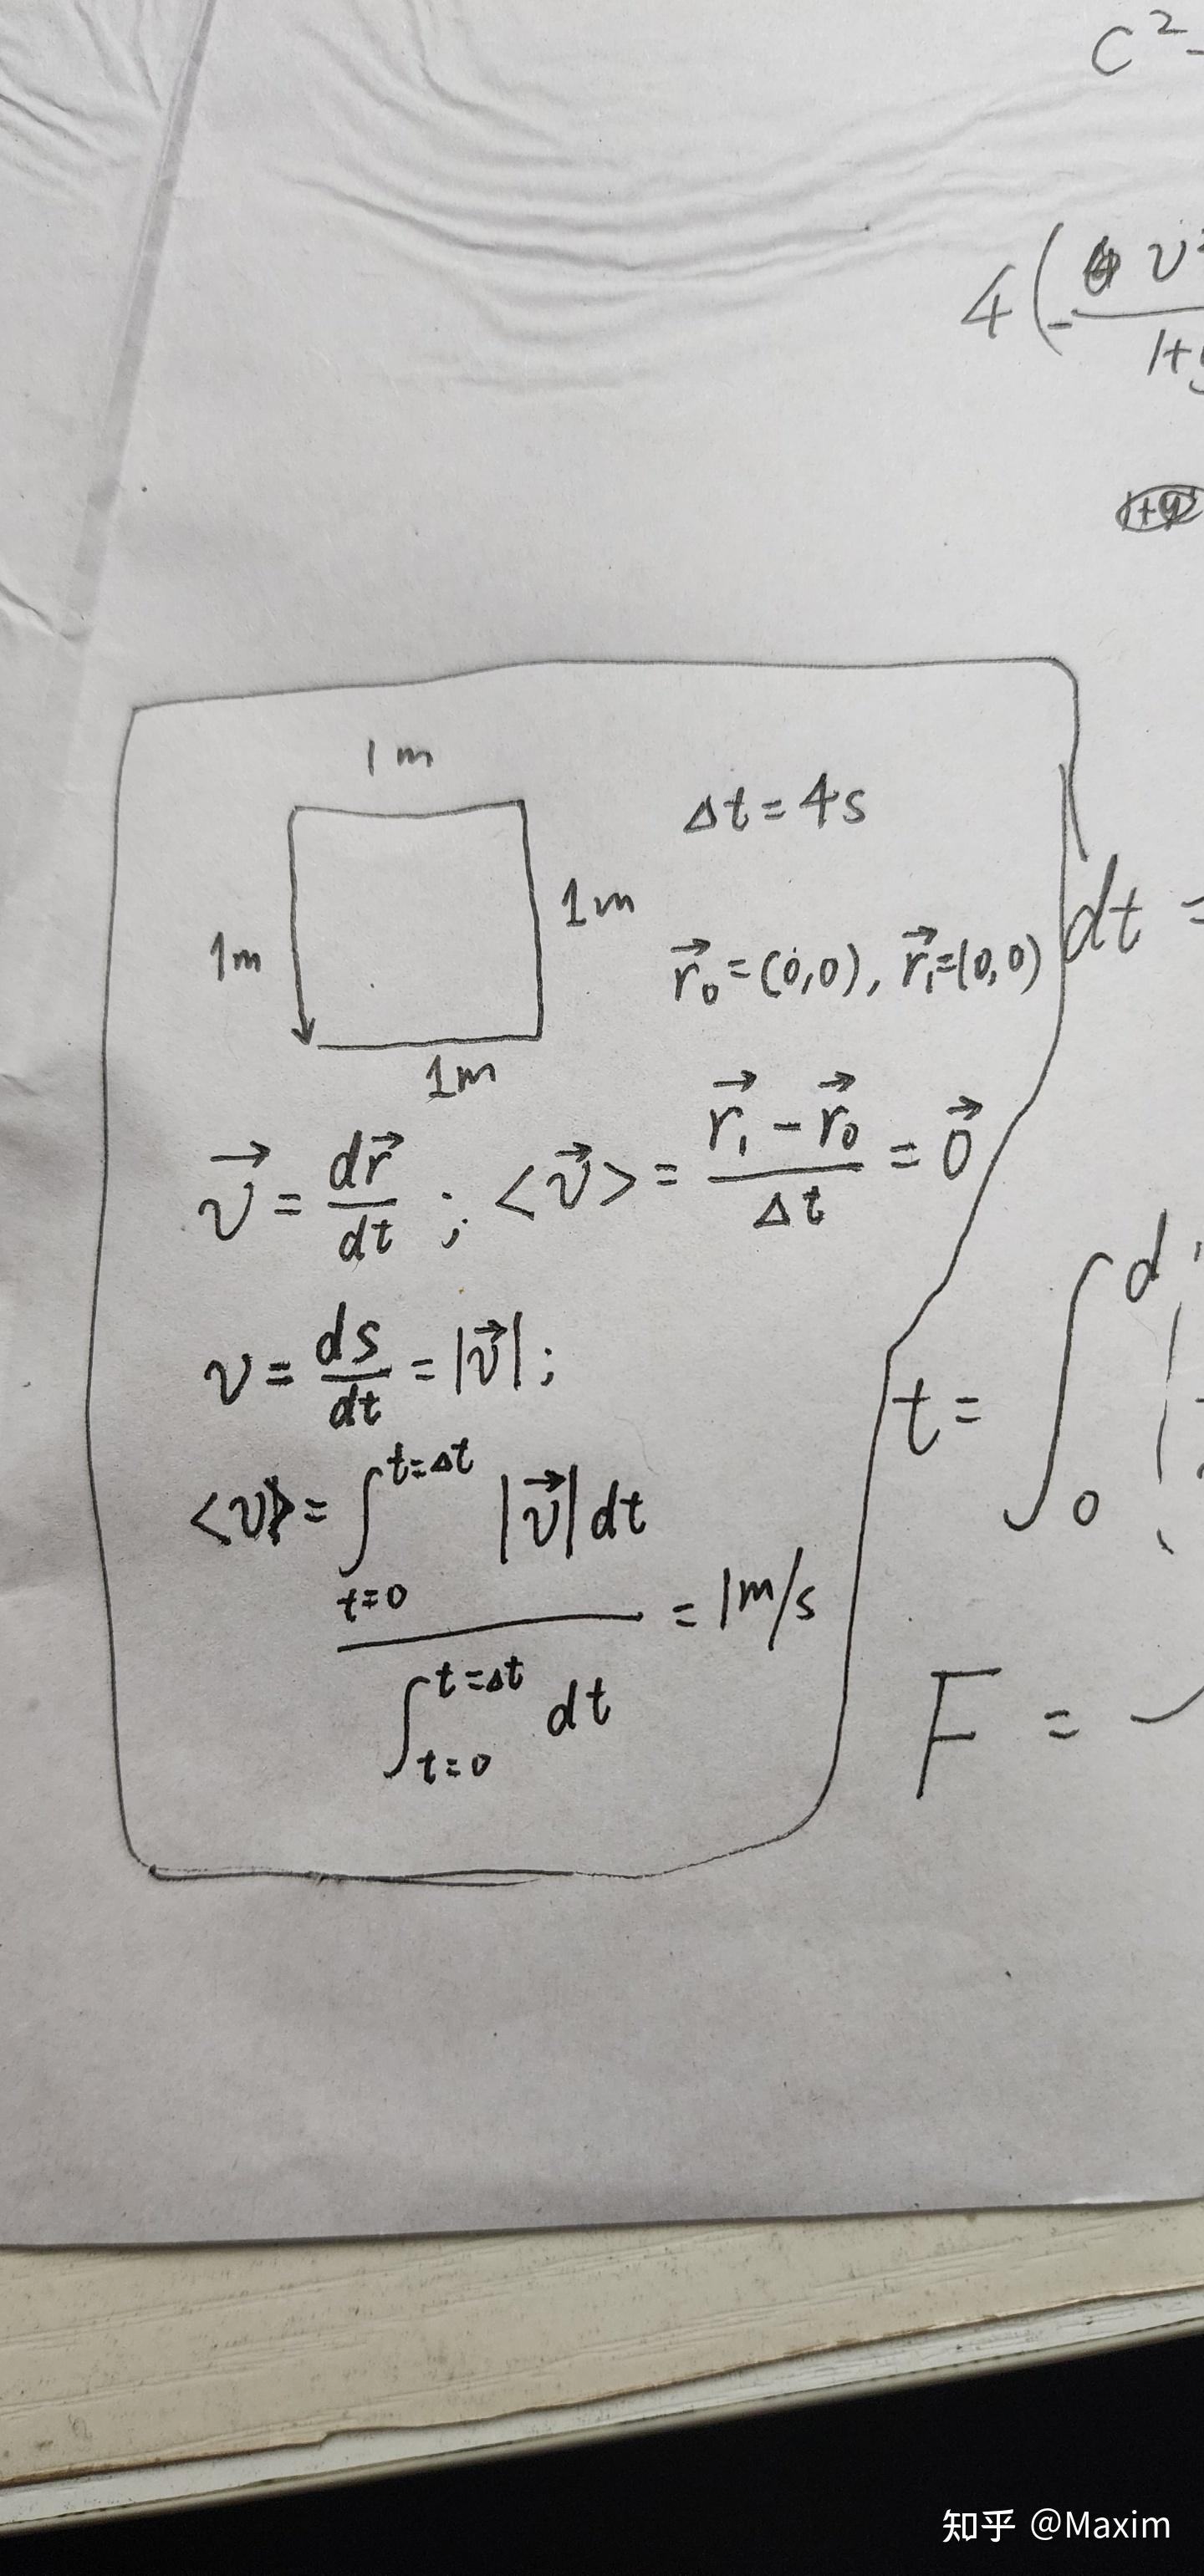 C² -
4(- v²
1+y
1+y²
1m
Δt = 4s
1m
1m
r⃗₀ = (0,0), r⃗₁ = (0,0)
dt =
1m
v⃗ = dr⃗/dt ; <v⃗> = (r⃗₁ - r⃗₀)/Δt = 0⃗
v = ds/dt = |v⃗| ;
<v> = ∫_{t=0}^{t=Δt} |v⃗| dt / ∫_{t=0}^{t=Δt} dt = 1m/s
t = ∫₀^d
F =
知乎 @Maxim